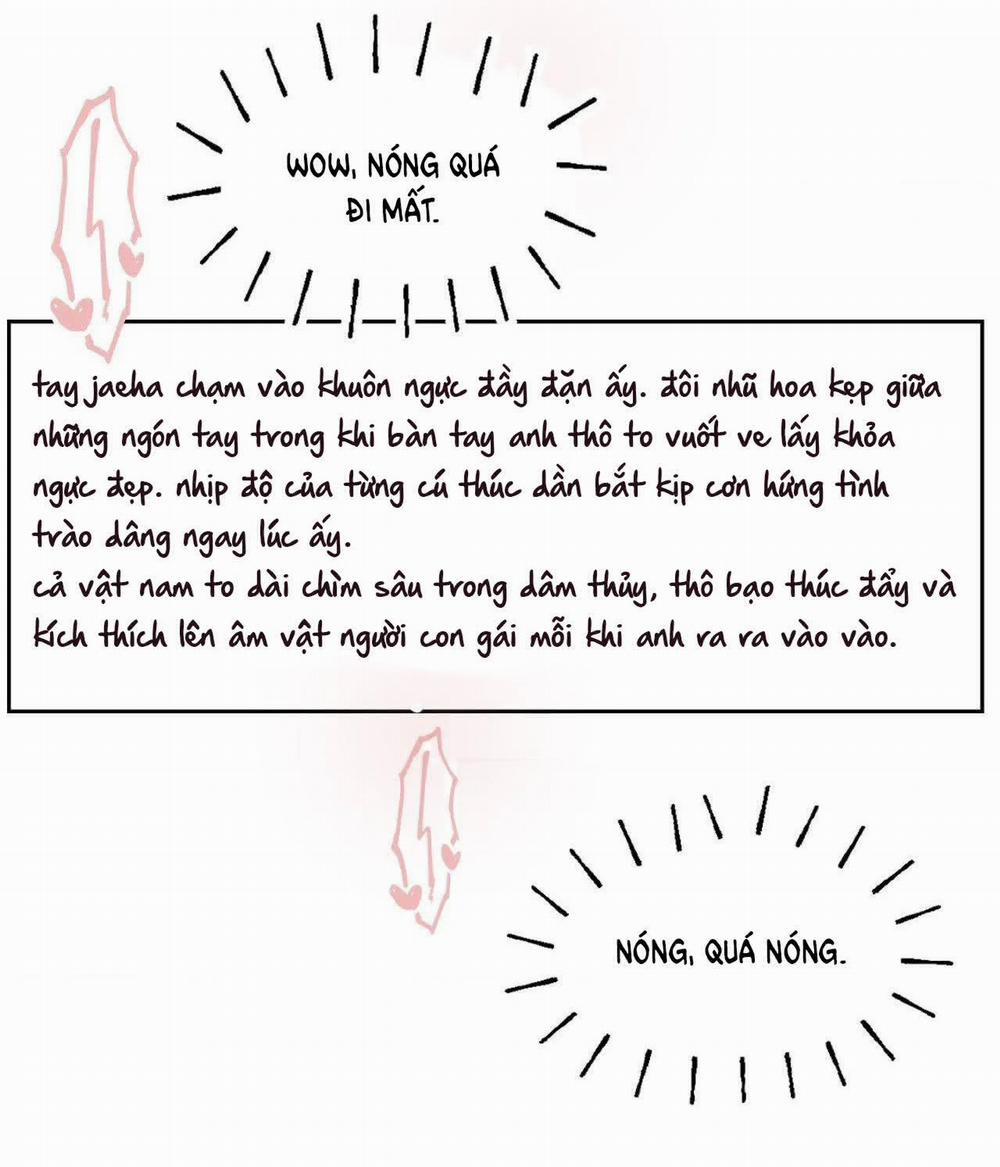 WOW, NÓNG QUÁ
ĐI MẤT.
tay jaeha chạm vào khuôn ngực đầy đặn ấy. đôi nhũ hoa kẹp giữa
những ngón tay trong khi bàn tay anh thô to vuốt ve lấy khỏa
ngực đẹp. nhịp độ của từng cú thúc dần bắt kịp cơn hứng tình
trào dâng ngay lúc ấy.
cả vật nam to dài chìm sâu trong dâm thủy, thô bạo thúc đẩy và
kích thích lên âm vật người con gái mỗi khi anh ra ra vào vào.
NÓNG, QUÁ NÓNG.